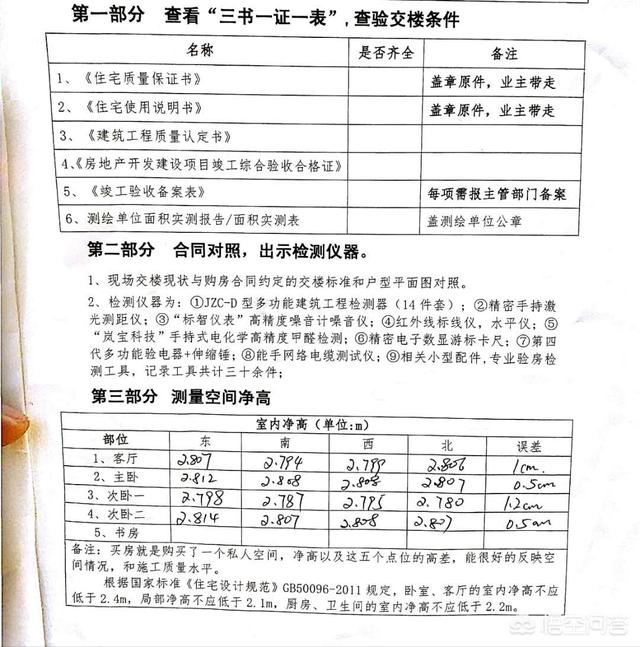 第一部分 查看“三书一证一表”,查验交楼条件
名称 是否齐全 备注
1、《住宅质量保证书》 盖章原件，业主带走
2、《住宅使用说明书》 盖章原件，业主带走
3、《建筑工程质量认定书》
4、《房地产开发建设项目竣工综合验收合格证》
5、《竣工验收备案表》 每项需报主管部门备案
6、测绘单位面积实测报告/面积实测表 盖测绘单位公章
第二部分 合同对照，出示检测仪器。
1、现场交楼现状与购房合同约定的交楼标准和户型平面图对照。
2、检测仪器为：①JZC-D 型多功能建筑工程检测器（14 件套）；②精密手持激
光测距仪；③“标智仪表”高精度噪音计噪音仪；④红外线标线仪，水平仪；⑤
“岚宝科技”手持式电化学高精度甲醛检测；⑥精密电子数显游标卡尺；⑦第四
代多功能验电器+伸缩锤；⑧能手网络电缆测试仪；⑨相关小型配件,专业验房检
测工具，记录工具共计三十余件；
第三部分 测量空间净高
室内净高（单位:m）
部位 东 南 西 北 误差
1、客厅 2.807 2.794 2.799 2.806 1cm.
2、主卧 2.812 2.808 2.808 2.807 0.5cm
3、次卧一 2.798 2.787 2.795 2.780 1.2cm
4、次卧二 2.814 2.807 2.808 2.807 0.5cm
5、书房
备注：买房就是购买了一个私人空间，净高以及这五个点位的高差，能很好的反映空
间情况，和施工质量水平。
根据国家标准《住宅设计规范》GB50096-2011 规定，卧室、客厅的室内净高不应
低于 2.4m，局部净高不应低于 2.1m，厨房、卫生间的室内净高不应低于 2.2m。
悟空问答